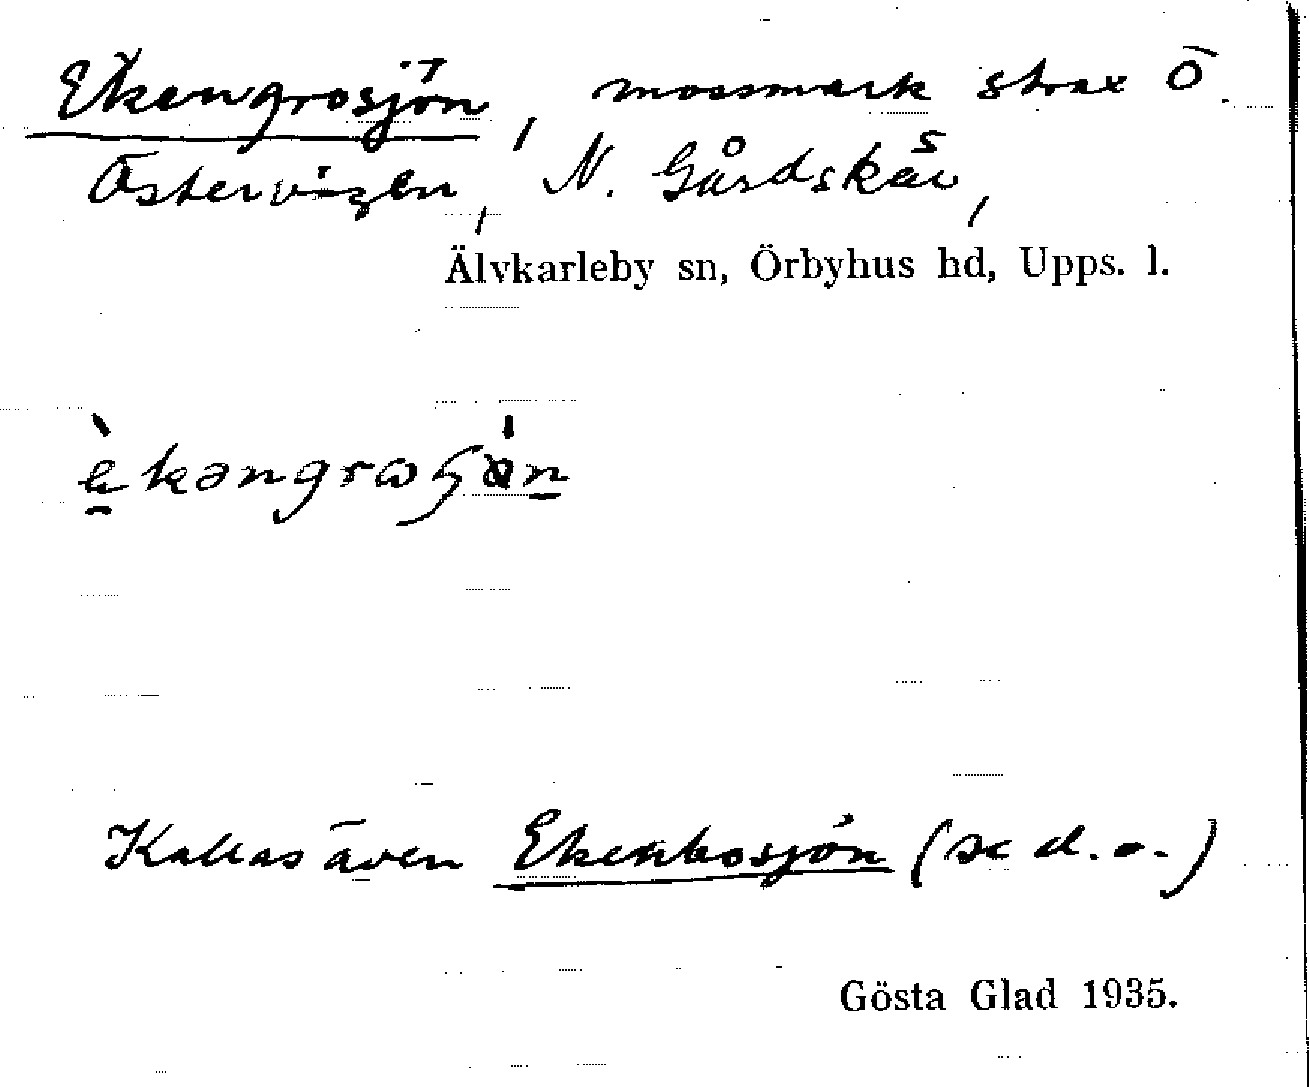 Ekengrosjön, mossmark strax Ö.
Östervigen, N. Gårdskär,
Älvkarleby sn, Örbyhus hd, Upps. l.
Kallas även Ekenbosjön (se d. o.)
Gösta Glad 1935.